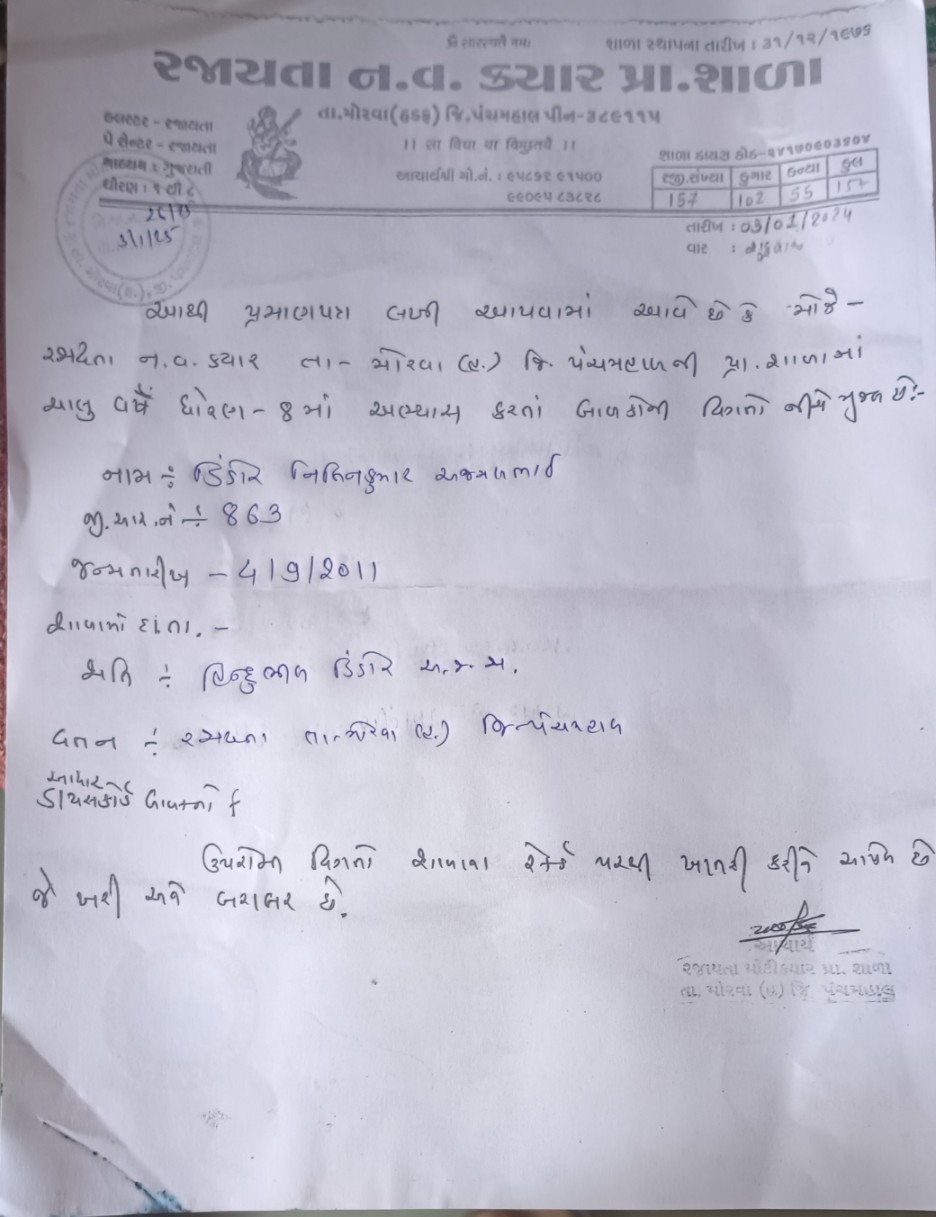 ૐ સરસ્વત્યૈ નમઃ
શાળા સ્થાપના તારીખ : ૩૧/૧૨/૧૯૭૬
રજાયતા ન.વ. કયાર પ્રા.શાળા
તા.મોરવા(હડફ) જિ.પંચમહાલ પીન-૩૮૯૧૧૫
ક્લસ્ટર - રજાયતા
પે સેન્ટર - રજાયતા
માધ્યમ : ગુજરાતી
ધોરણ : ૧ થી ૮
।। સા વિદ્યા યા વિમુક્તયે ।।
આચાર્યશ્રી મો.નં. : ૯૫૮૬૨ ૯૧૫૦૦
૯૯૦૯૫ ૮૩૮૨૮
શાળા ડાયસ કોડ-૨૪૧૭૦૬૦૩૬૦૪
રજી.સંખ્યા કુમાર કન્યા કુલ
157 102 55 157
3/1/25
તારીખ : 03/01/2024
વાર :
આથી પ્રમાણપત્ર લખી આપવામાં આવે છે કે મોજે -
રજાયતા ન.વ. કયાર તા- મોરવા (હ.) જિ. પંચમહાલની પ્રા. શાળામાં
ચાલુ વર્ષે ધોરણ - 8 માં અભ્યાસ કરતાં બાળકોની વિગતો નીચે મુજબ છે:-
નામ ÷ ડિંડોર નિતિનકુમાર
જી.આર.નં ÷ 863
જન્મતારીખ - 4/9/2011
શાળામાં દાખલા. -
જાતિ ÷ હિન્દુ ભીલ ડિંડોર અ.જ.જા.
વતન ÷ રજાયતા તા-મોરવા (હ.) જિ-પંચમહાલ
આધાર
ડાયસકોર્ડ
ઉપરોક્ત વિગતો શાળાના રેકર્ડ પરથી ખાતરી કરીને આપેલ છે
જે ખરી અને બરાબર છે.
આચાર્ય
રજાયતા મોટીકયાર પ્રા. શાળા
તા. મોરવા (હ) જિ. પંચમહાલ